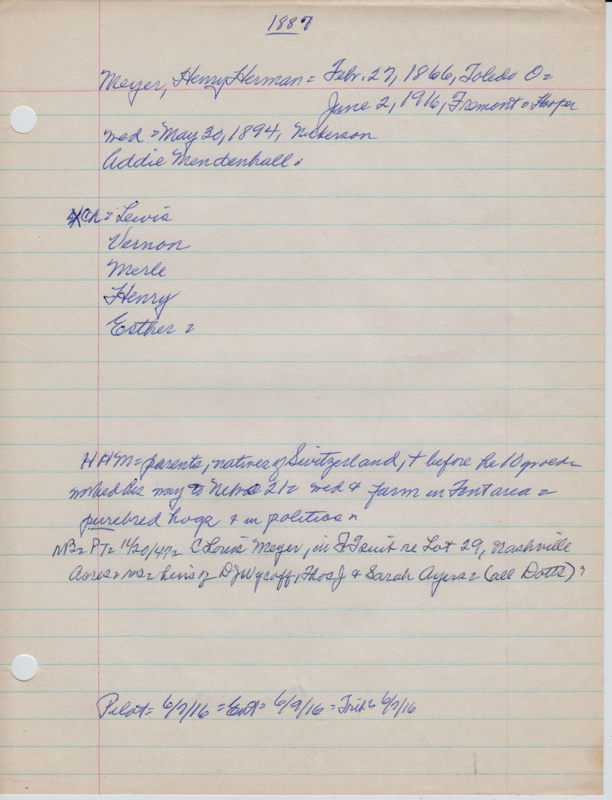 1887
Meyer, Henry Herman = Febr. 27, 1866, Toledo O =
June 2, 1916, Fremont =
med = May 30, 1894, Nickerson
Addie Mendenhall.
Ch = Lewis
Vernon
Merle
Henry
Esther =
HHM = parents, natives of Switzerland, + before he 10
worked his way to Neb 21 = med + farm in Font area =
purebred hogs + in politics =
NB = PT = 11/20/47 = C Louis Meyer, in suit re Lot 29, Nashville
Acres = vs = heirs of D J Wycoff, Thos J + Sarah Ayers = (all Dotts)
Pilot = 6/7/16 = Ent = 6/9/16 = Trib = 6/2/16